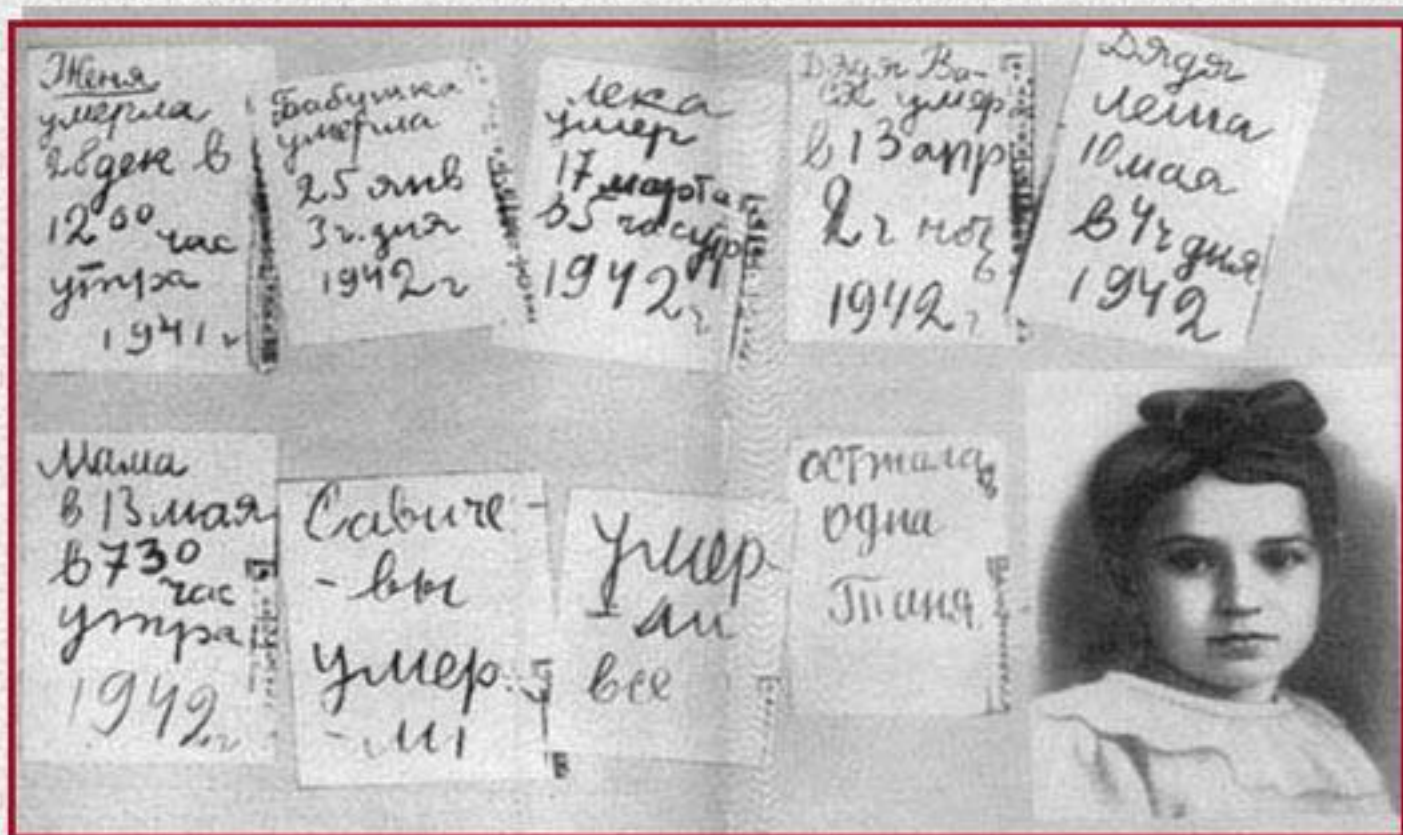 Женя
умерла
28 дек в
12 00 час
утра
1941 г
Бабушка
умерла
25 янв
3 ч. дня
1942 г
Лека
умер
17 марта
в 5 час утр
1942 г
Дядя Ва-
ся умер
в 13 апр
2 ч ноч
ь
1942 г
Дядя
Леша
10 мая
в 4 ч дня
1942
Мама
в 13 мая
в 7 30
час
утра
1942 г
Савиче-
-вы
умер.
-ли
Умер-
-ли
все
осталась
одна
Таня